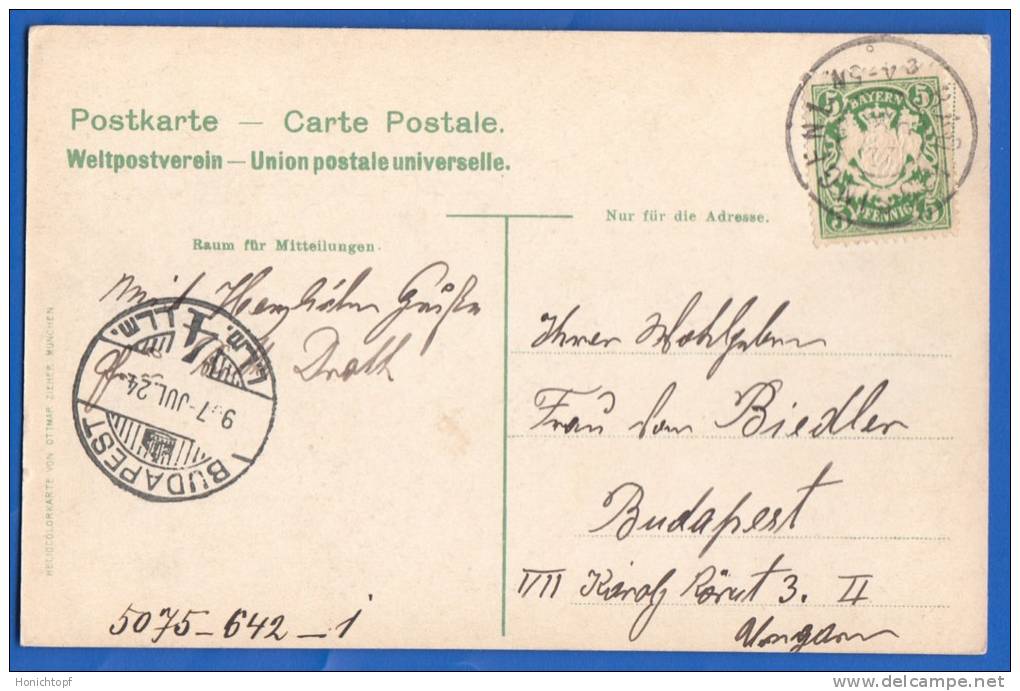 Postkarte — Carte Postale.
Weltpostverein — Union postale universelle.
5 BAYERN 5
5 PFENNIG 5
Nur für die Adresse.
Raum für Mitteilungen.
Mit Herzlichen Grüßen
Ihrer Wohlgeboren
Frau von Biedler
Budapest
VII Károly Körut 3. II
Ungarn
BUDAPEST
907-JUL.24
4
HELIOCOLORKARTE VON OTTMAR ZIEHER, MÜNCHEN
5075-642-1
Honichtopf
www.delcampe.net